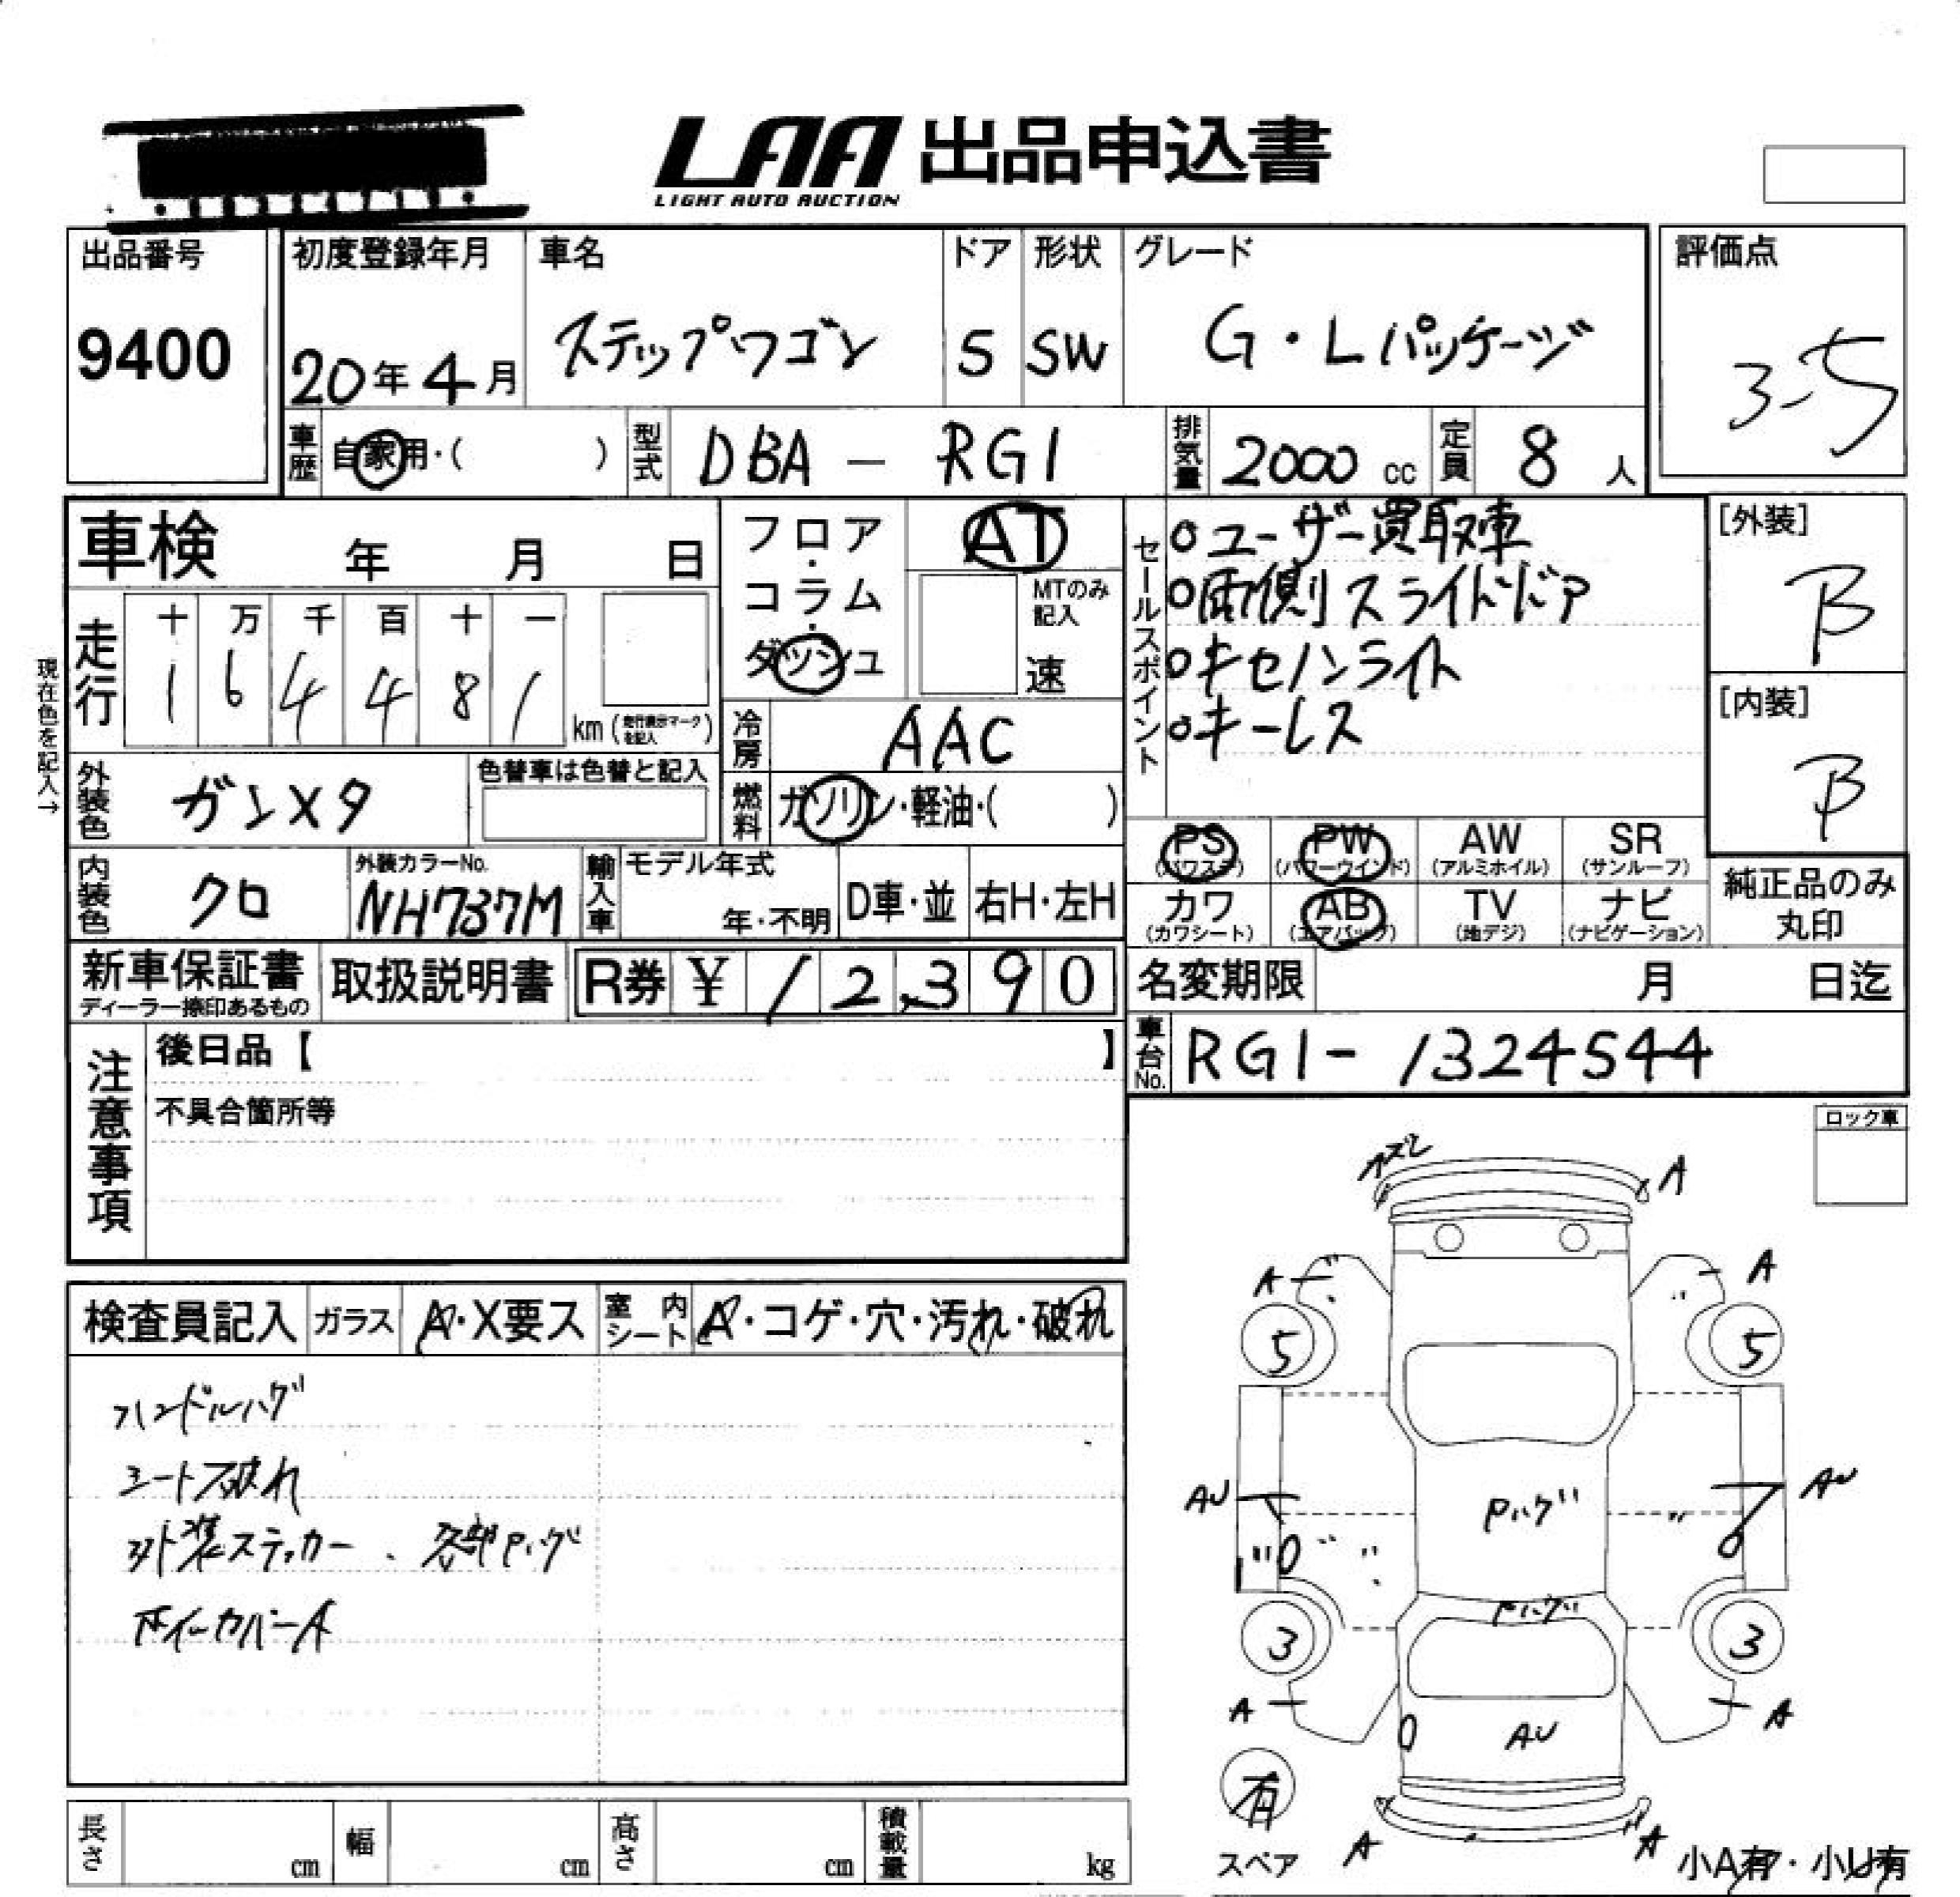 LAA 出品申込書
LIGHT AUTO AUCTION
出品番号
9400
初度登録年月
20年4月
車名
ステップワゴン
ドア
5
形状
SW
グレード
G・Lパッケージ
評価点
3.5
車歴
自家用・( )
型式
DBA - RG1
排気量
2000 cc
定員
8人
車検 年 月 日
走行
十 万 千 百 十 一
1 6 4 4 8 1
km (走行表示マークを記入)
現在色を記入→
フロア・コラム・ダッシュ
AT
MTのみ記入
速
冷房
AAC
燃料
ガソリン・軽油・( )
外装色
ガンメタ
色替車は色替と記入
内装色
クロ
外装カラーNo.
NH737M
輸入車
モデル年式
年・不明
D車・並
右H・左H
セールスポイント
○ユーザー買取車
○両側スライドドア
○キセノンライト
○キーレス
[外装]
B
[内装]
B
PS
(パワステ)
PW
(パワーウインド)
AW
(アルミホイル)
SR
(サンルーフ)
カワ
(カワシート)
AB
(エアバッグ)
TV
(地デジ)
ナビ
(ナビゲーション)
純正品のみ
丸印
新車保証書
ディーラー捺印あるもの
取扱説明書
R券 ¥ 12,390
名変期限 月 日迄
車台No.
RG1-1324544
注意事項
後日品【 】
不具合箇所等
ロック車
検査員記入
ガラス
A・X要ス
室内シート
A・コゲ・穴・汚れ・破れ
ハンドルハゲ
シート破れ
外装ステッカー、各部Pハゲ
ホイールカバーA
A
A
A
5
5
AU
AU
Pハゲ
Pハゲ
3
3
A
A
AU
有
スペア
A
A
小A有・小U有
長さ cm
幅 cm
高さ cm
積載量 kg